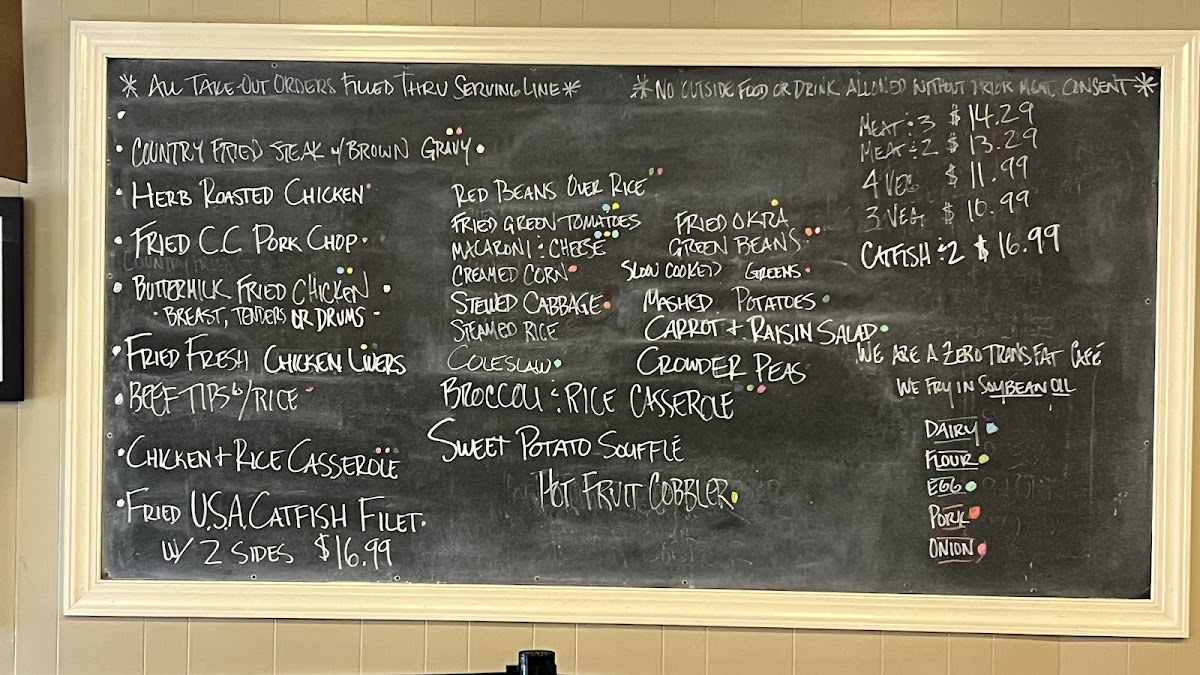 * ALL TAKE-OUT ORDERS FILLED THRU SERVING LINE *
* NO OUTSIDE FOOD OR DRINK ALLOWED WITHOUT PRIOR MGMT. CONSENT *
• COUNTRY FRIED STEAK W/ BROWN GRAVY
• HERB ROASTED CHICKEN
• FRIED C.C. PORK CHOP
• BUTTERMILK FRIED CHICKEN
• BREAST, TENDERS OR DRUMS -
• FRIED FRESH CHICKEN LIVERS
• BEEF TIPS W/RICE
• CHICKEN + RICE CASSEROLE
• FRIED U.S.A. CATFISH FILET
W/ 2 SIDES $16.99
RED BEANS OVER RICE
FRIED GREEN TOMATOES
MACARONI & CHEESE
CREAMED CORN
STEWED CABBAGE
STEAMED RICE
COLESLAW
BROCCOLI & RICE CASSEROLE
SWEET POTATO SOUFFLÉ
HOT FRUIT COBBLER
FRIED OKRA
GREEN BEANS
SLOW COOKED GREENS
MASHED POTATOES
CARROT + RAISIN SALAD
CROWDER PEAS
MEAT & 3 $14.29
MEAT & 2 $13.29
4 VEG $11.99
3 VEG $10.99
CATFISH & 2 $16.99
WE ARE A ZERO TRANS FAT CAFÉ
WE FRY IN SOYBEAN OIL
DAIRY
FLOUR
EGG
PORK
ONION